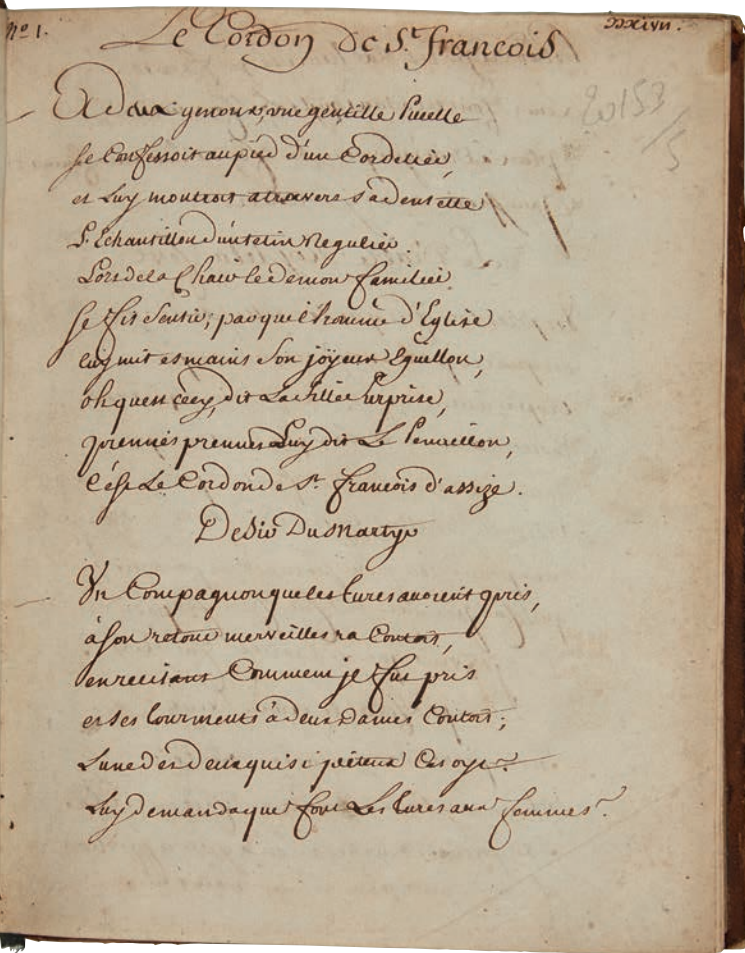 No 1.
xxxivii.
Le Cordon de St. francois
20153
/5
A deux genoux, une gentille Pucelle
se Confessoit au pied d'un Cordelier,
et Luy montroit a travers sa dentelle
L'Echantillon d'un tetin Regulier.
Lors de la Chair le demon familier
se fit sentir; par quoy l'homme d'Eglise
luy mit es mains son joÿeux Eguillon,
oh qu'est cecy, dit La fille surprise,
prennés prennés Luy dit Le Penaillon,
C'est Le Cordon de St. francois d'assize.
Desir Du Martyr
Un Compagnon que les turcs avoient pris,
a son retour merveilles ra Contoit,
en recitant Comment je fus pris
et ses tourments a deux Dames Contoit;
L'une des deux qui si piteux Cas oyt
Luy demanda que font Les turcs aux femmes?